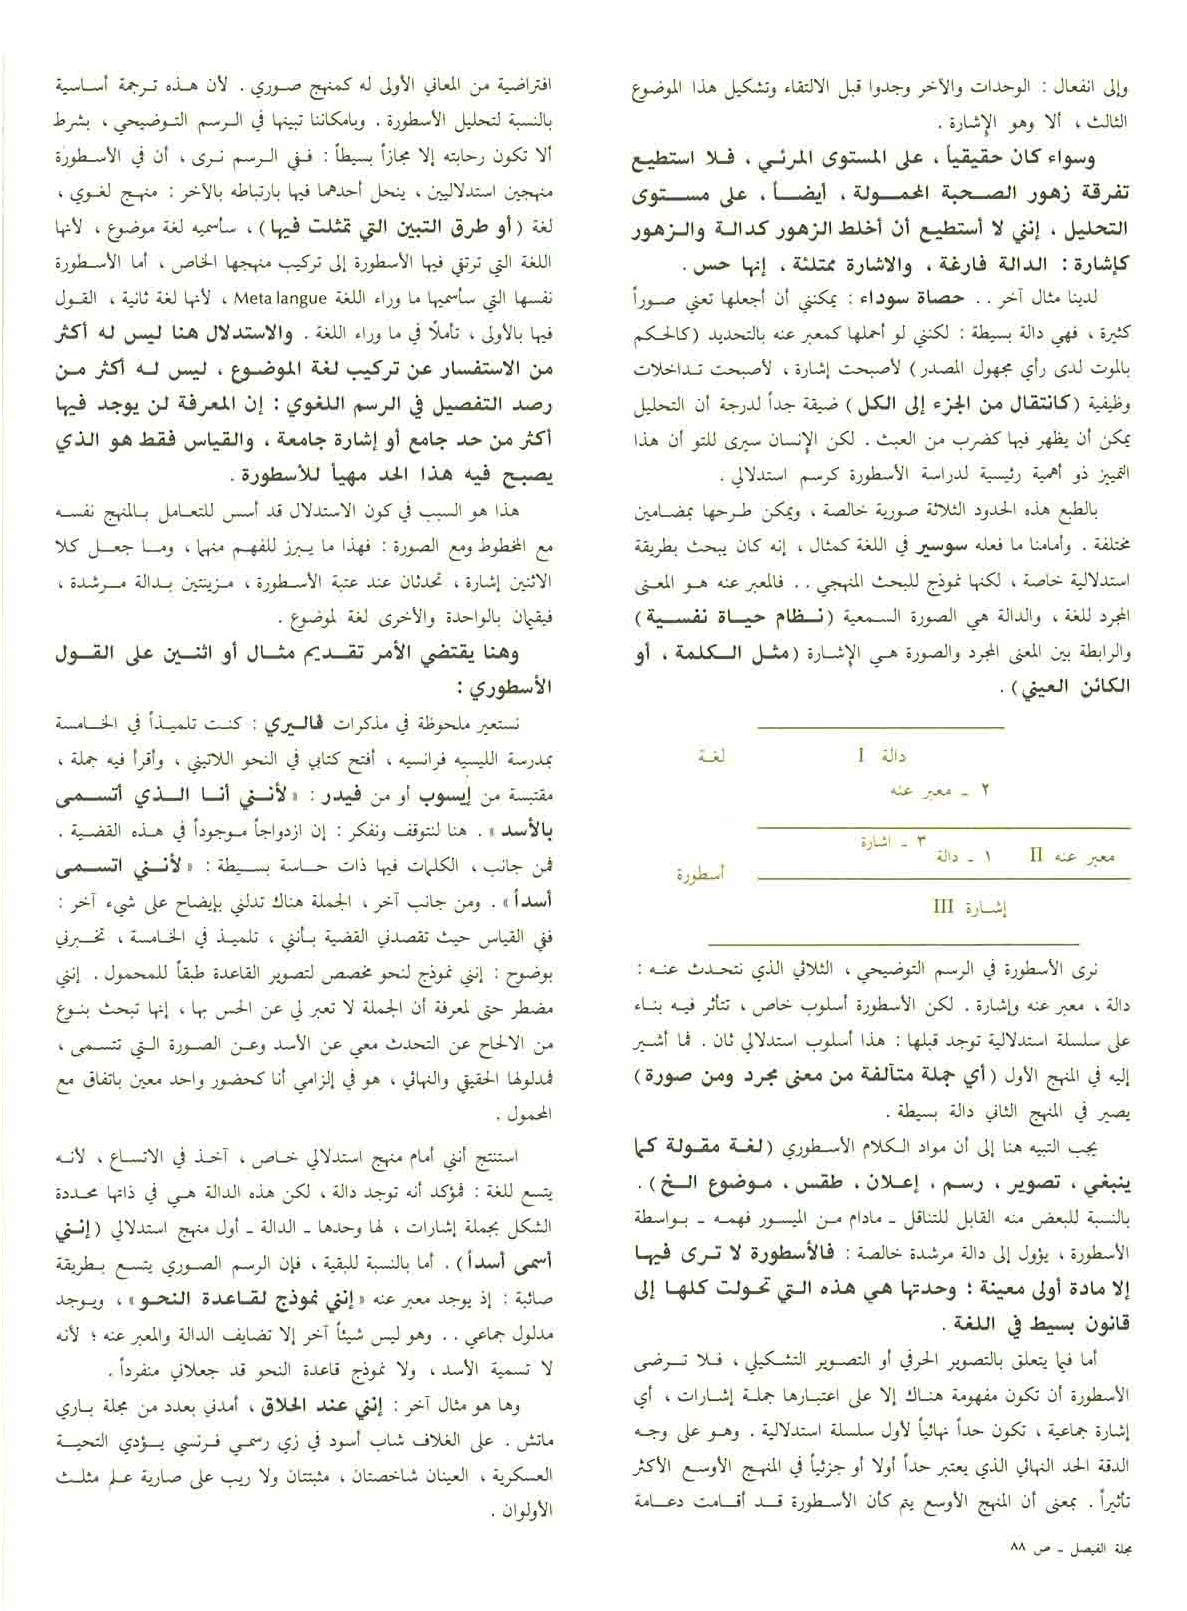 وإلى انفعال : الوحدات والآخر وجدوا قبل الالتقاء وتشكيل هذا الموضوع
الثالث ، ألا وهو الإشارة .
وسواء كان حقيقياً ، على المستوى المرئي ، فلا استطيع
تفرقة زهور الصحبة المحمولة ، أيضاً ، على مستوى
التحليل ، إنني لا أستطيع أن أخلط الزهور كدالة والزهور
كإشارة : الدالة فارغة ، والاشارة ممتلئة ، إنها حس .
لدينا مثال آخر .. حصاة سوداء : يمكنني أن أجعلها تعني صوراً
كثيرة ، فهي دالة بسيطة : لكنني لو أحملها كمعبر عنه بالتحديد (كالحكم
بالموت لدى رأي مجهول المصدر) لأصبحت إشارة ، لأصبحت تداخلات
وظيفية (كانتقال من الجزء إلى الكل) ضيقة جداً لدرجة أن التحليل
يمكن أن يظهر فيها كضرب من العبث . لكن الإنسان سيرى للتو أن هذا
التمييز ذو أهمية رئيسية لدراسة الأسطورة كرسم استدلالي .
بالطبع هذه الحدود الثلاثة صورية خالصة ، ويمكن طرحها بمضامين
مختلفة . وأمامنا ما فعله سوسير في اللغة كمثال ، إنه كان يبحث بطريقة
استدلالية خاصة ، لكنها نموذج للبحث المنهجي .. فالمعبر عنه هو المعنى
المجرد للغة ، والدالة هي الصورة السمعية (نظام حياة نفسية)
والرابطة بين المعنى المجرد والصورة هي الإشارة (مثل الكلمة ، أو
الكائن العيني) .
دالة I لغة
٢ ـ معبر عنه
٣ ـ اشارة
معبر عنه II ١ ـ دالة
أسطورة
إشارة III
نرى الأسطورة في الرسم التوضيحي ، الثلاثي الذي نتحدث عنه :
دالة ، معبر عنه وإشارة . لكن الأسطورة أسلوب خاص ، تتأثر فيه بناء
على سلسلة استدلالية توجد قبلها : هذا أسلوب استدلالي ثان . فما أشير
إليه في المنهج الأول (أي جملة متآلفة من معنى مجرد ومن صورة)
يصير في المنهج الثاني دالة بسيطة .
يجب التبيه هنا إلى أن مواد الكلام الأسطوري (لغة مقولة كما
ينبغي ، تصوير ، رسم ، إعلان ، طقس ، موضوع الخ) .
بالنسبة للبعض منه القابل للتناقل ـ مادام من الميسور فهمه ـ بواسطة
الأسطورة ، يؤول إلى دالة مرشدة خالصة : فالأسطورة لا ترى فيها
إلا مادة أولى معينة ؛ وحدتها هي هذه التي تحولت كلها إلى
قانون بسيط في اللغة .
أما فيما يتعلق بالتصوير الحرفي أو التصوير التشكيلي ، فلا ترضى
الأسطورة أن تكون مفهومة هناك إلا على اعتبارها جملة إشارات ، أي
إشارة جماعية ، تكون حداً نهائياً لأول سلسلة استدلالية . وهو على وجه
الدقة الحد النهائي الذي يعتبر حداً أولا أو جزئياً في المنهج الأوسع الأكثر
تأثيراً . بمعنى أن المنهج الأوسع يتم كأن الأسطورة قد أقامت دعامة
افتراضية من المعاني الأولى له كمنهج صوري . لأن هذه ترجمة أساسية
بالنسبة لتحليل الأسطورة . وبامكاننا تبينها في الرسم التوضيحي ، بشرط
ألا تكون رحابته إلا مجازاً بسيطاً : ففي الرسم نرى ، أن في الأسطورة
منهجين استدلاليين ، ينحل أحدهما فيها بارتباطه بالآخر : منهج لغوي ،
لغة (أو طرق التبين التي تمثلت فيها) ، سأسميه لغة موضوع ، لأنها
اللغة التي ترتقي فيها الأسطورة إلى تركيب منهجها الخاص ، أما الأسطورة
نفسها التي سأسميها ما وراء اللغة Meta langue ، لأنها لغة ثانية ، القول
فيها بالأولى ، تأملًا في ما وراء اللغة . والاستدلال هنا ليس له أكثر
من الاستفسار عن تركيب لغة الموضوع ، ليس له أكثر من
رصد التفصيل في الرسم اللغوي : إن المعرفة لن يوجد فيها
أكثر من حد جامع أو إشارة جامعة ، والقياس فقط هو الذي
يصبح فيه هذا الحد مهيأ للأسطورة .
هذا هو السبب في كون الاستدلال قد أسس للتعامل بالمنهج نفسه
مع المخطوط ومع الصورة : فهذا ما يبرز للفهم منهما ، وما جعل كلا
الاثنين إشارة ، تحدثان عند عتبة الأسطورة ، مزينتين بدالة مرشدة ،
فيقيمان بالواحدة والأخرى لغة لموضوع .
وهنا يقتضي الأمر تقديم مثال أو اثنين على القول
الأسطوري :
نستعير ملحوظة في مذكرات ڤاليري : كنت تلميذاً في الخامسة
بمدرسة الليسيه فرانسيه ، أفتح كتابي في النحو اللاتيني ، وأقرأ فيه جملة ،
مقتبسة من إيسوب أو من فيدر : «لأنني أنا الذي أتسمى
بالأسد» . هنا لنتوقف ونفكر : إن ازدواجاً موجوداً في هذه القضية .
فمن جانب ، الكلمات فيها ذات حاسة بسيطة : «لأنني اتسمى
أسداً» . ومن جانب آخر ، الجملة هناك تدلني بإيضاح على شيء آخر :
ففي القياس حيث تقصدني القضية بأنني ، تلميذ في الخامسة ، تخبرني
بوضوح : إنني نموذج لنحو مخصص لتصوير القاعدة طبقاً للمحمول . إنني
مضطر حتى لمعرفة أن الجملة لا تعبر لي عن الحس بها ، إنها تبحث بنوع
من الالحاح عن التحدث معي عن الأسد وعن الصورة التي تتسمى ،
فمدلولها الحقيقي والنهائي ، هو في إلزامي أنا كحضور واحد معين باتفاق مع
المحمول .
استنتج أنني أمام منهج استدلالي خاص ، آخذ في الاتساع ، لأنه
يتسع للغة : فمؤكد أنه توجد دالة ، لكن هذه الدالة هي في ذاتها محددة
الشكل بجملة إشارات ، لها وحدها ـ الدالة ـ أول منهج استدلالي (إنني
أسمى أسداً) . أما بالنسبة للبقية ، فإن الرسم الصوري يتسع بطريقة
صائبة : إذ يوجد معبر عنه «إنني نموذج لقاعدة النحو» ، ويوجد
مدلول جماعي .. وهو ليس شيئاً آخر إلا تضايف الدالة والمعبر عنه ؛ لأنه
لا تسمية الأسد ، ولا نموذج قاعدة النحو قد جعلاني منفرداً .
وها هو مثال آخر : إنني عند الحلاق ، أمدني بعدد من مجلة باري
ماتش . على الغلاف شاب أسود في زي رسمي فرنسي يؤدي التحية
العسكرية ، العينان شاخصتان ، مثبتتان ولا ريب على صارية علم مثلث
الألوان .
مجلة الفيصل ـ ص ٨٨